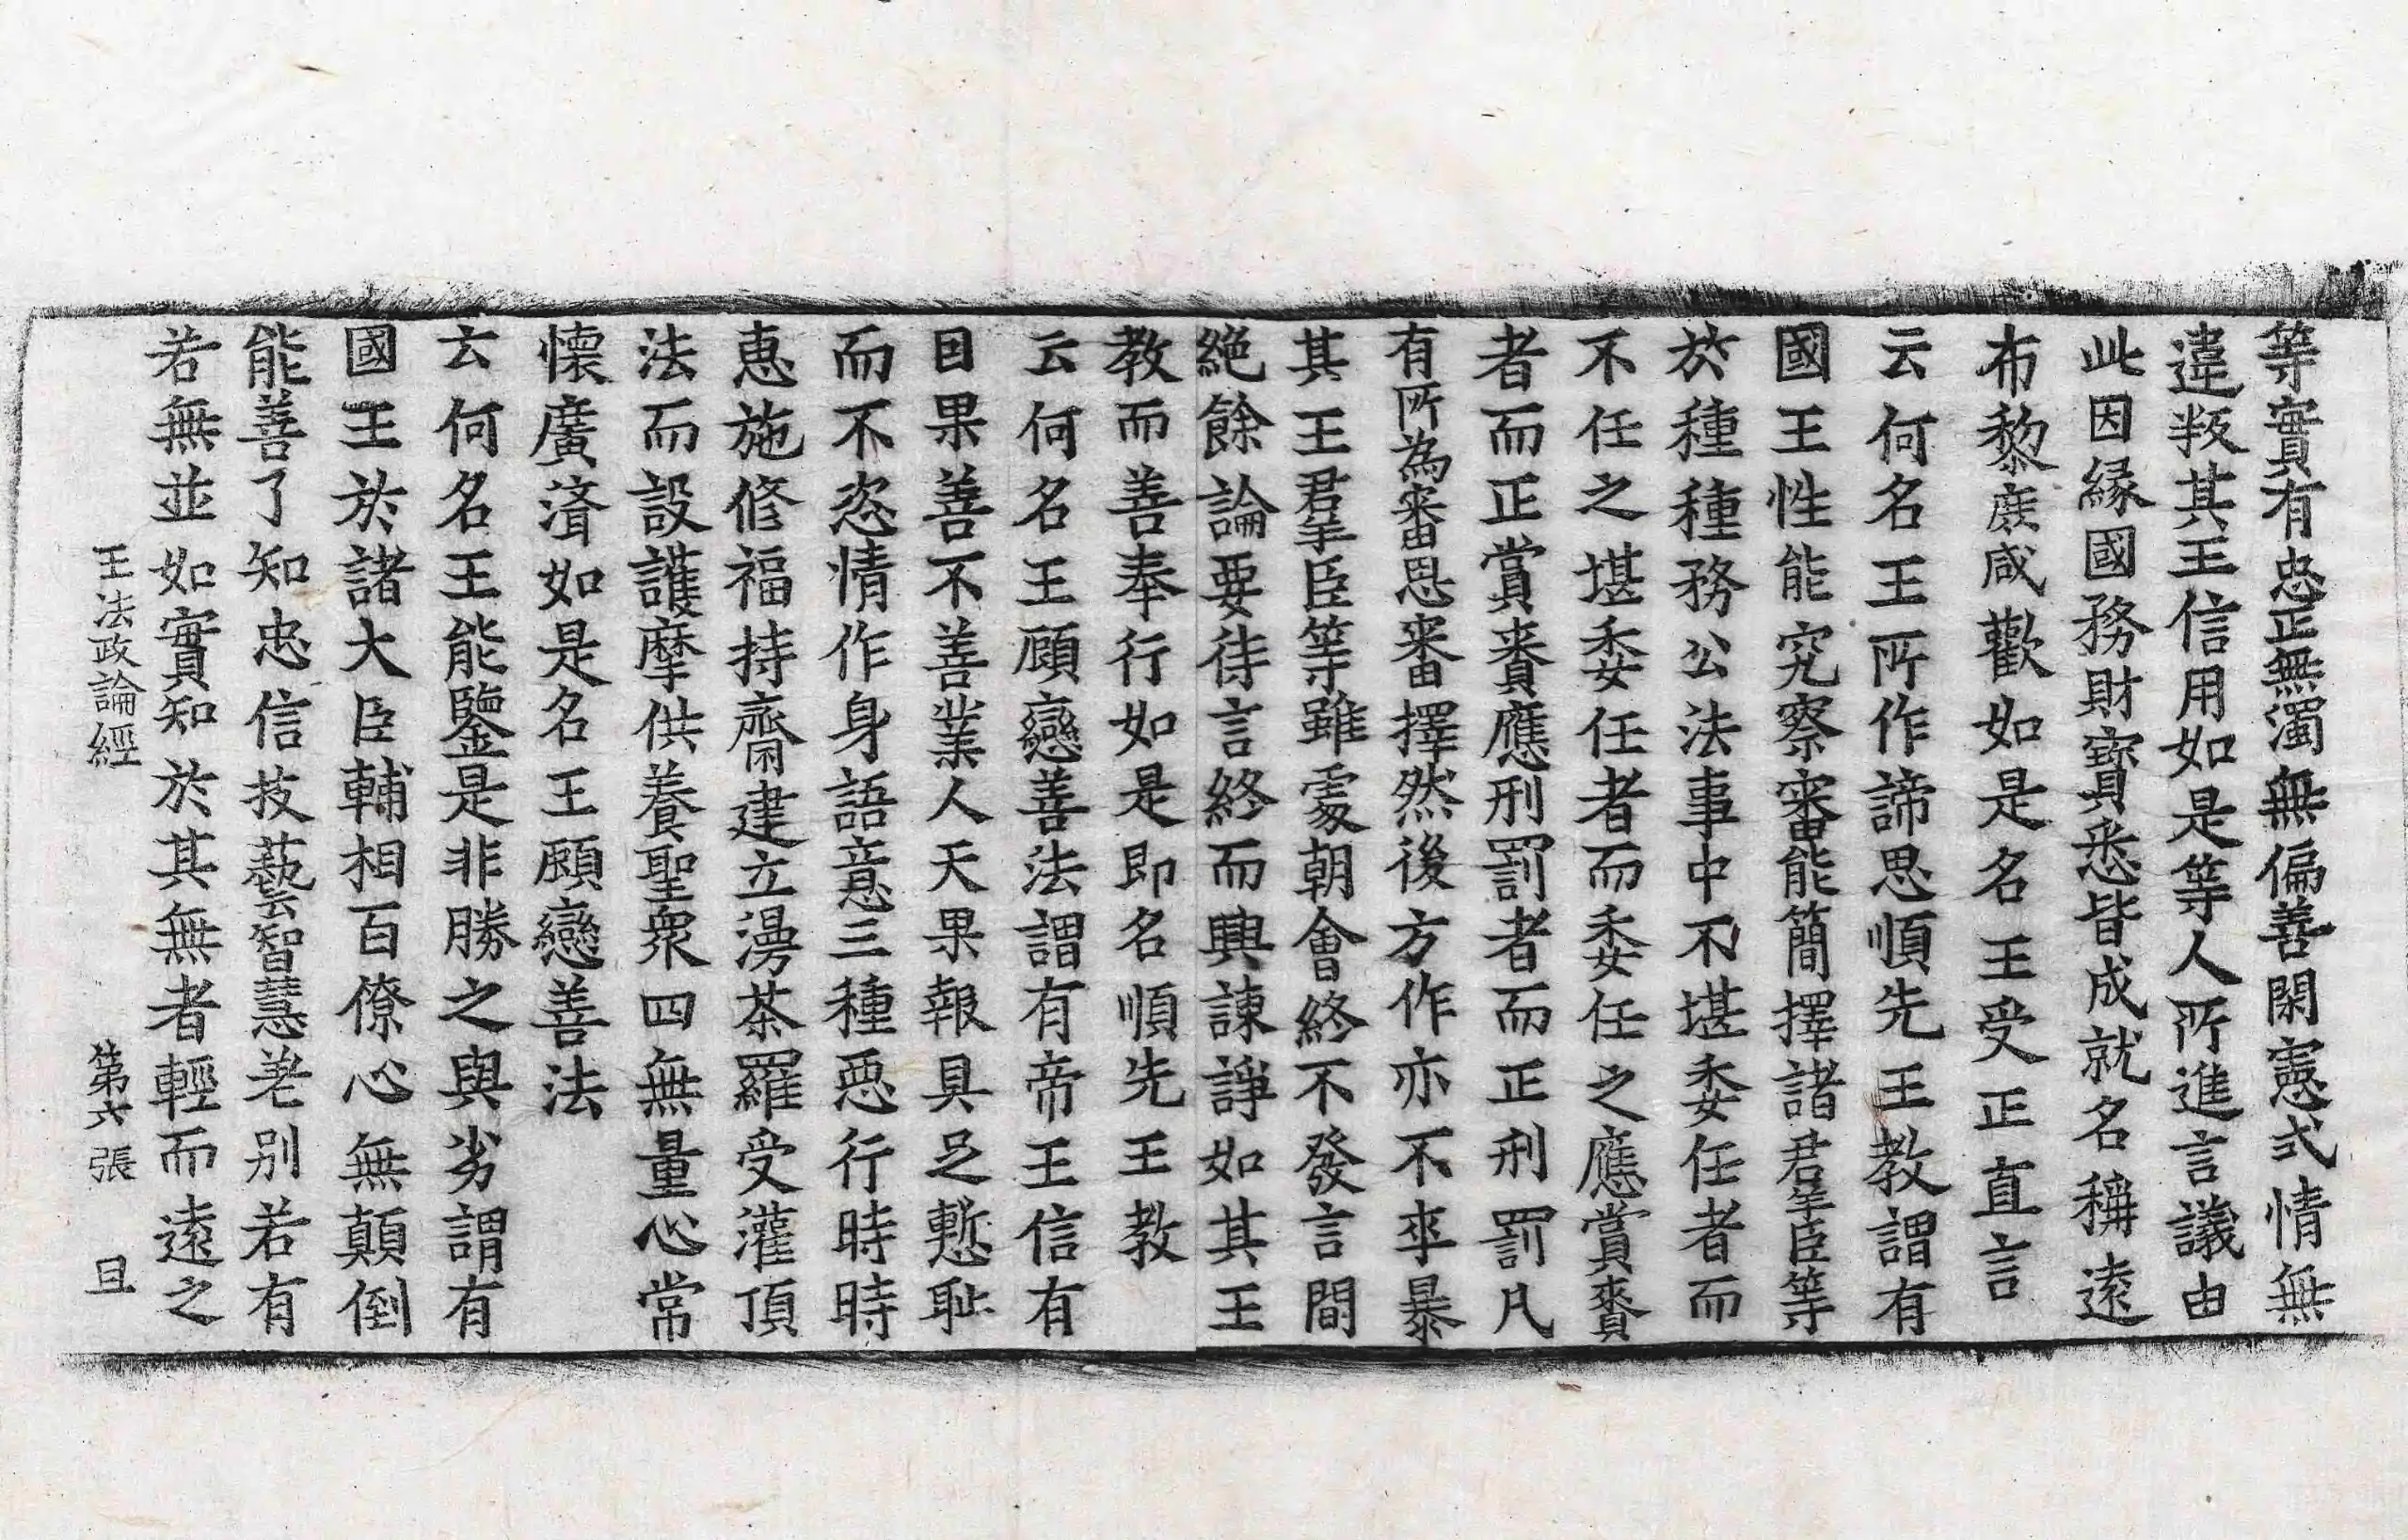 等實有忠正無濁無偏善閑憲式情無
違叛其王信用如是等人所進言議由
此因緣國務財寶悉皆成就名稱遠
布黎庶咸歡如是名王受正直言
云何名王所作諦思順先王教謂有
國王性能究察審能簡擇諸君羊臣等
於種種務公法事中不堪委任者而
不任之堪委任者而委任之應賞賚
者而正賞賚應刑罰者而正刑罰凡
有所為審思審擇然後方作亦不卒暴
其王羣臣等雖處朝會終不發言間
絕餘論要待言終而興諫諍如其王
教而善奉行如是即名順先王教
云何名王顧戀善法謂有帝王信有
因果善不善業人天果報具足慙恥
而不恣情作身語意三種惡行時時
惠施修福持齋建立漫茶羅受灌頂
法而設護摩供養聖衆四無量心常
懷廣濟如是名王顧戀善法
云何名王能鑒是非勝之與劣謂有
國王於諸大臣輔相百僚心無顛倒
能善了知忠信技藝智慧差別若有
若無並如實知於其無者輕而遠之
王法政論經 第六張 旦